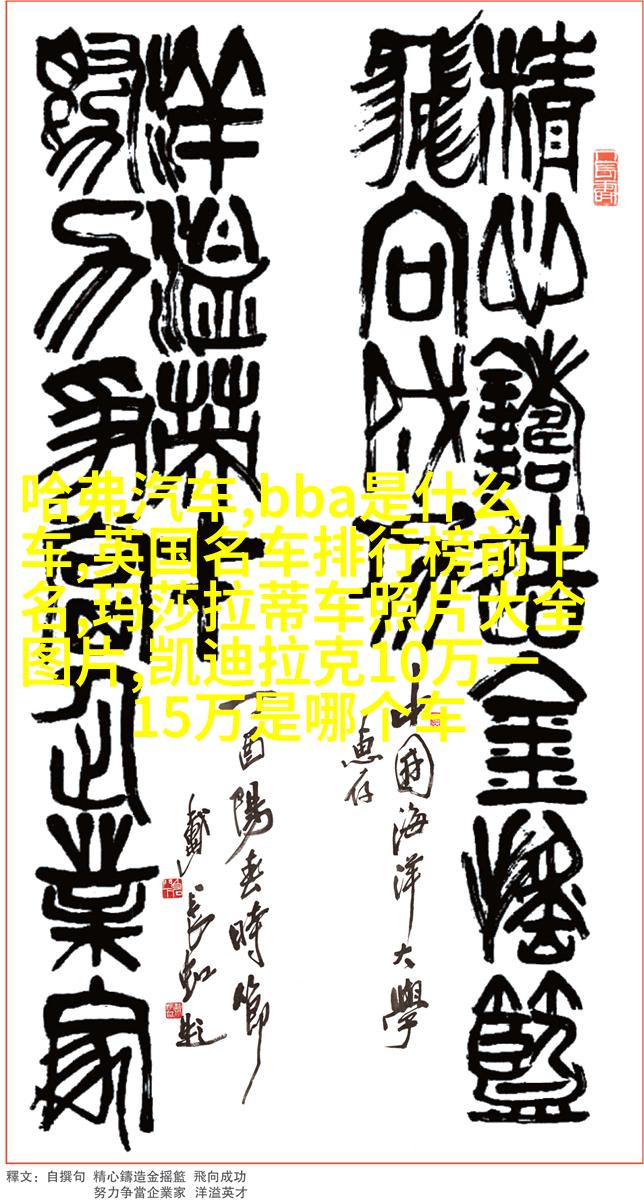 精心鑄造金搖籃
飛向成功
中國海洋大學
惠存
努力爭當企業家
洋溢英才
丁酉陽春時節
戴長虹題
哈弗汽车,bba是什么
车,英国名车排行榜前十
名,玛莎拉蒂车照片大全
图片,凯迪拉克10万一
15万是哪个车
釋文：自撰句 精心鑄造金摇籃 飛向成功
努力争當企業家 洋溢英才